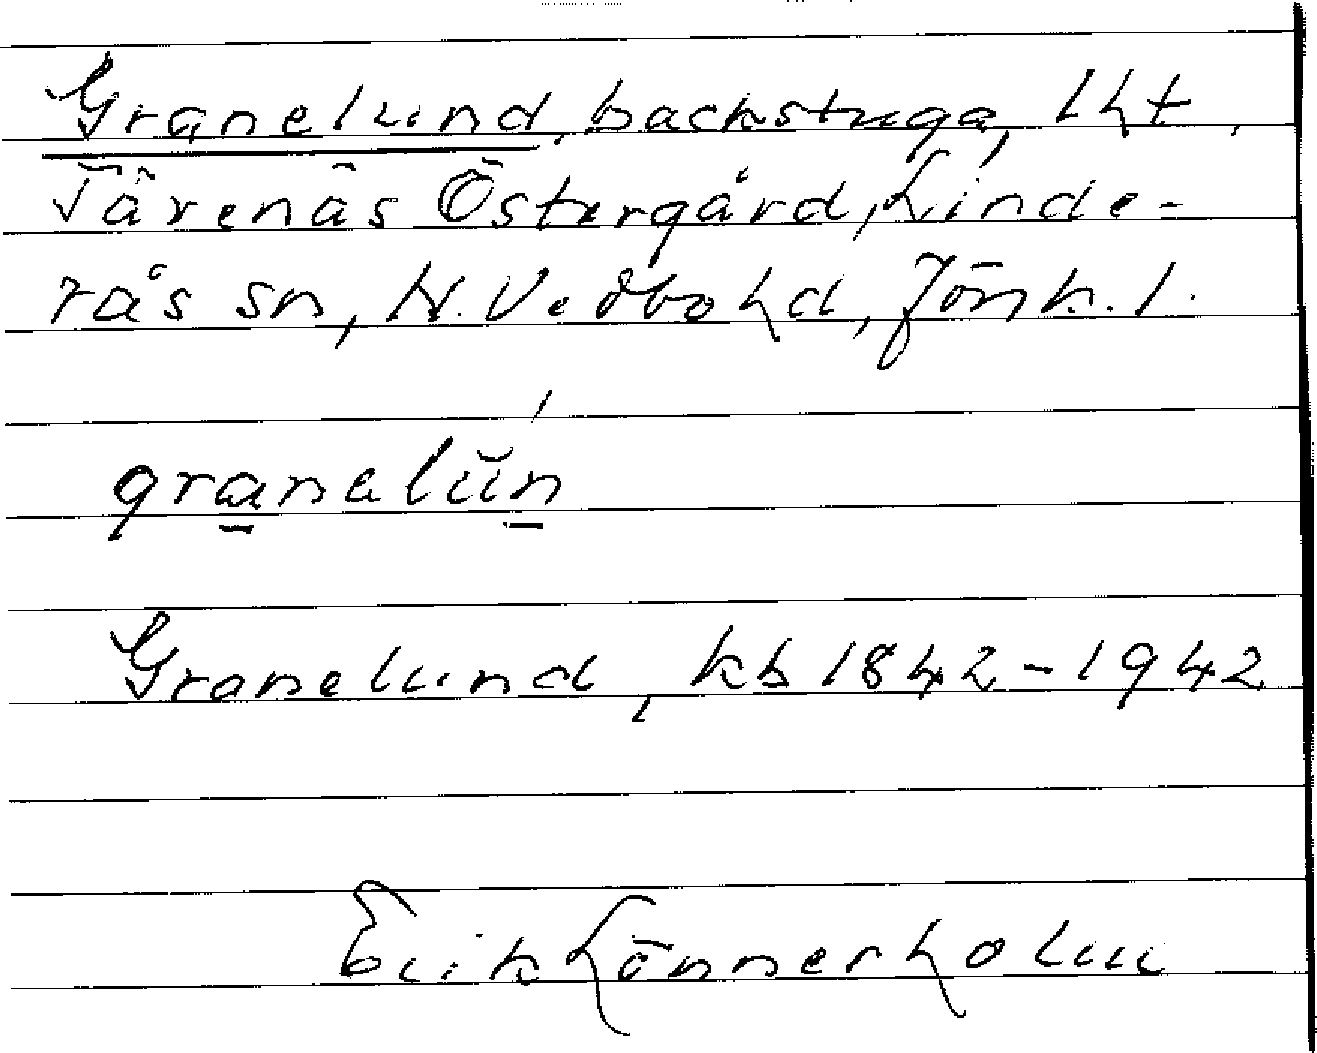 Granelund, backstuga, lht,
Tärenäs Östergård, Linde-
rås sn, N. Vedbo hd, Jönk. l.
granalun
Granelund, kb 1842-1942
Erik Lönnerholm